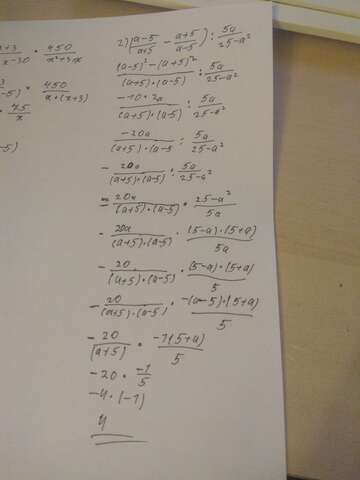 x+3 / x-30 · 450 / x²+3x
2) (a-5 / a+5 - a+5 / a-5) : 5a / 25-a²
(a-5)² - (a+5)² / (a+5)·(a-5) : 5a / 25-a²
-5) · 450 / x·(x+3)
-10·2a / (a+5)·(a-5) : 5a / 25-a²
· 45 / x
-20a / (a+5)·(a-5 : 5a / 25-a²
-5)
- 20a / (a+5)·(a-5) : 5a / 25-a²
= 20a / (a+5)·(a-5) · 25-a² / 5a
- 20a / (a+5)·(a-5) · (5-a)·(5+a) / 5a
- 20 / (a+5)·(a-5) · (5-a)·(5+a) / 5
- 20 / (a+5)·(a-5) · -(a-5)·(5+a) / 5
- 20 / (a+5) · -1(5+a) / 5
-20 · -1 / 5
-4·(-1)
4